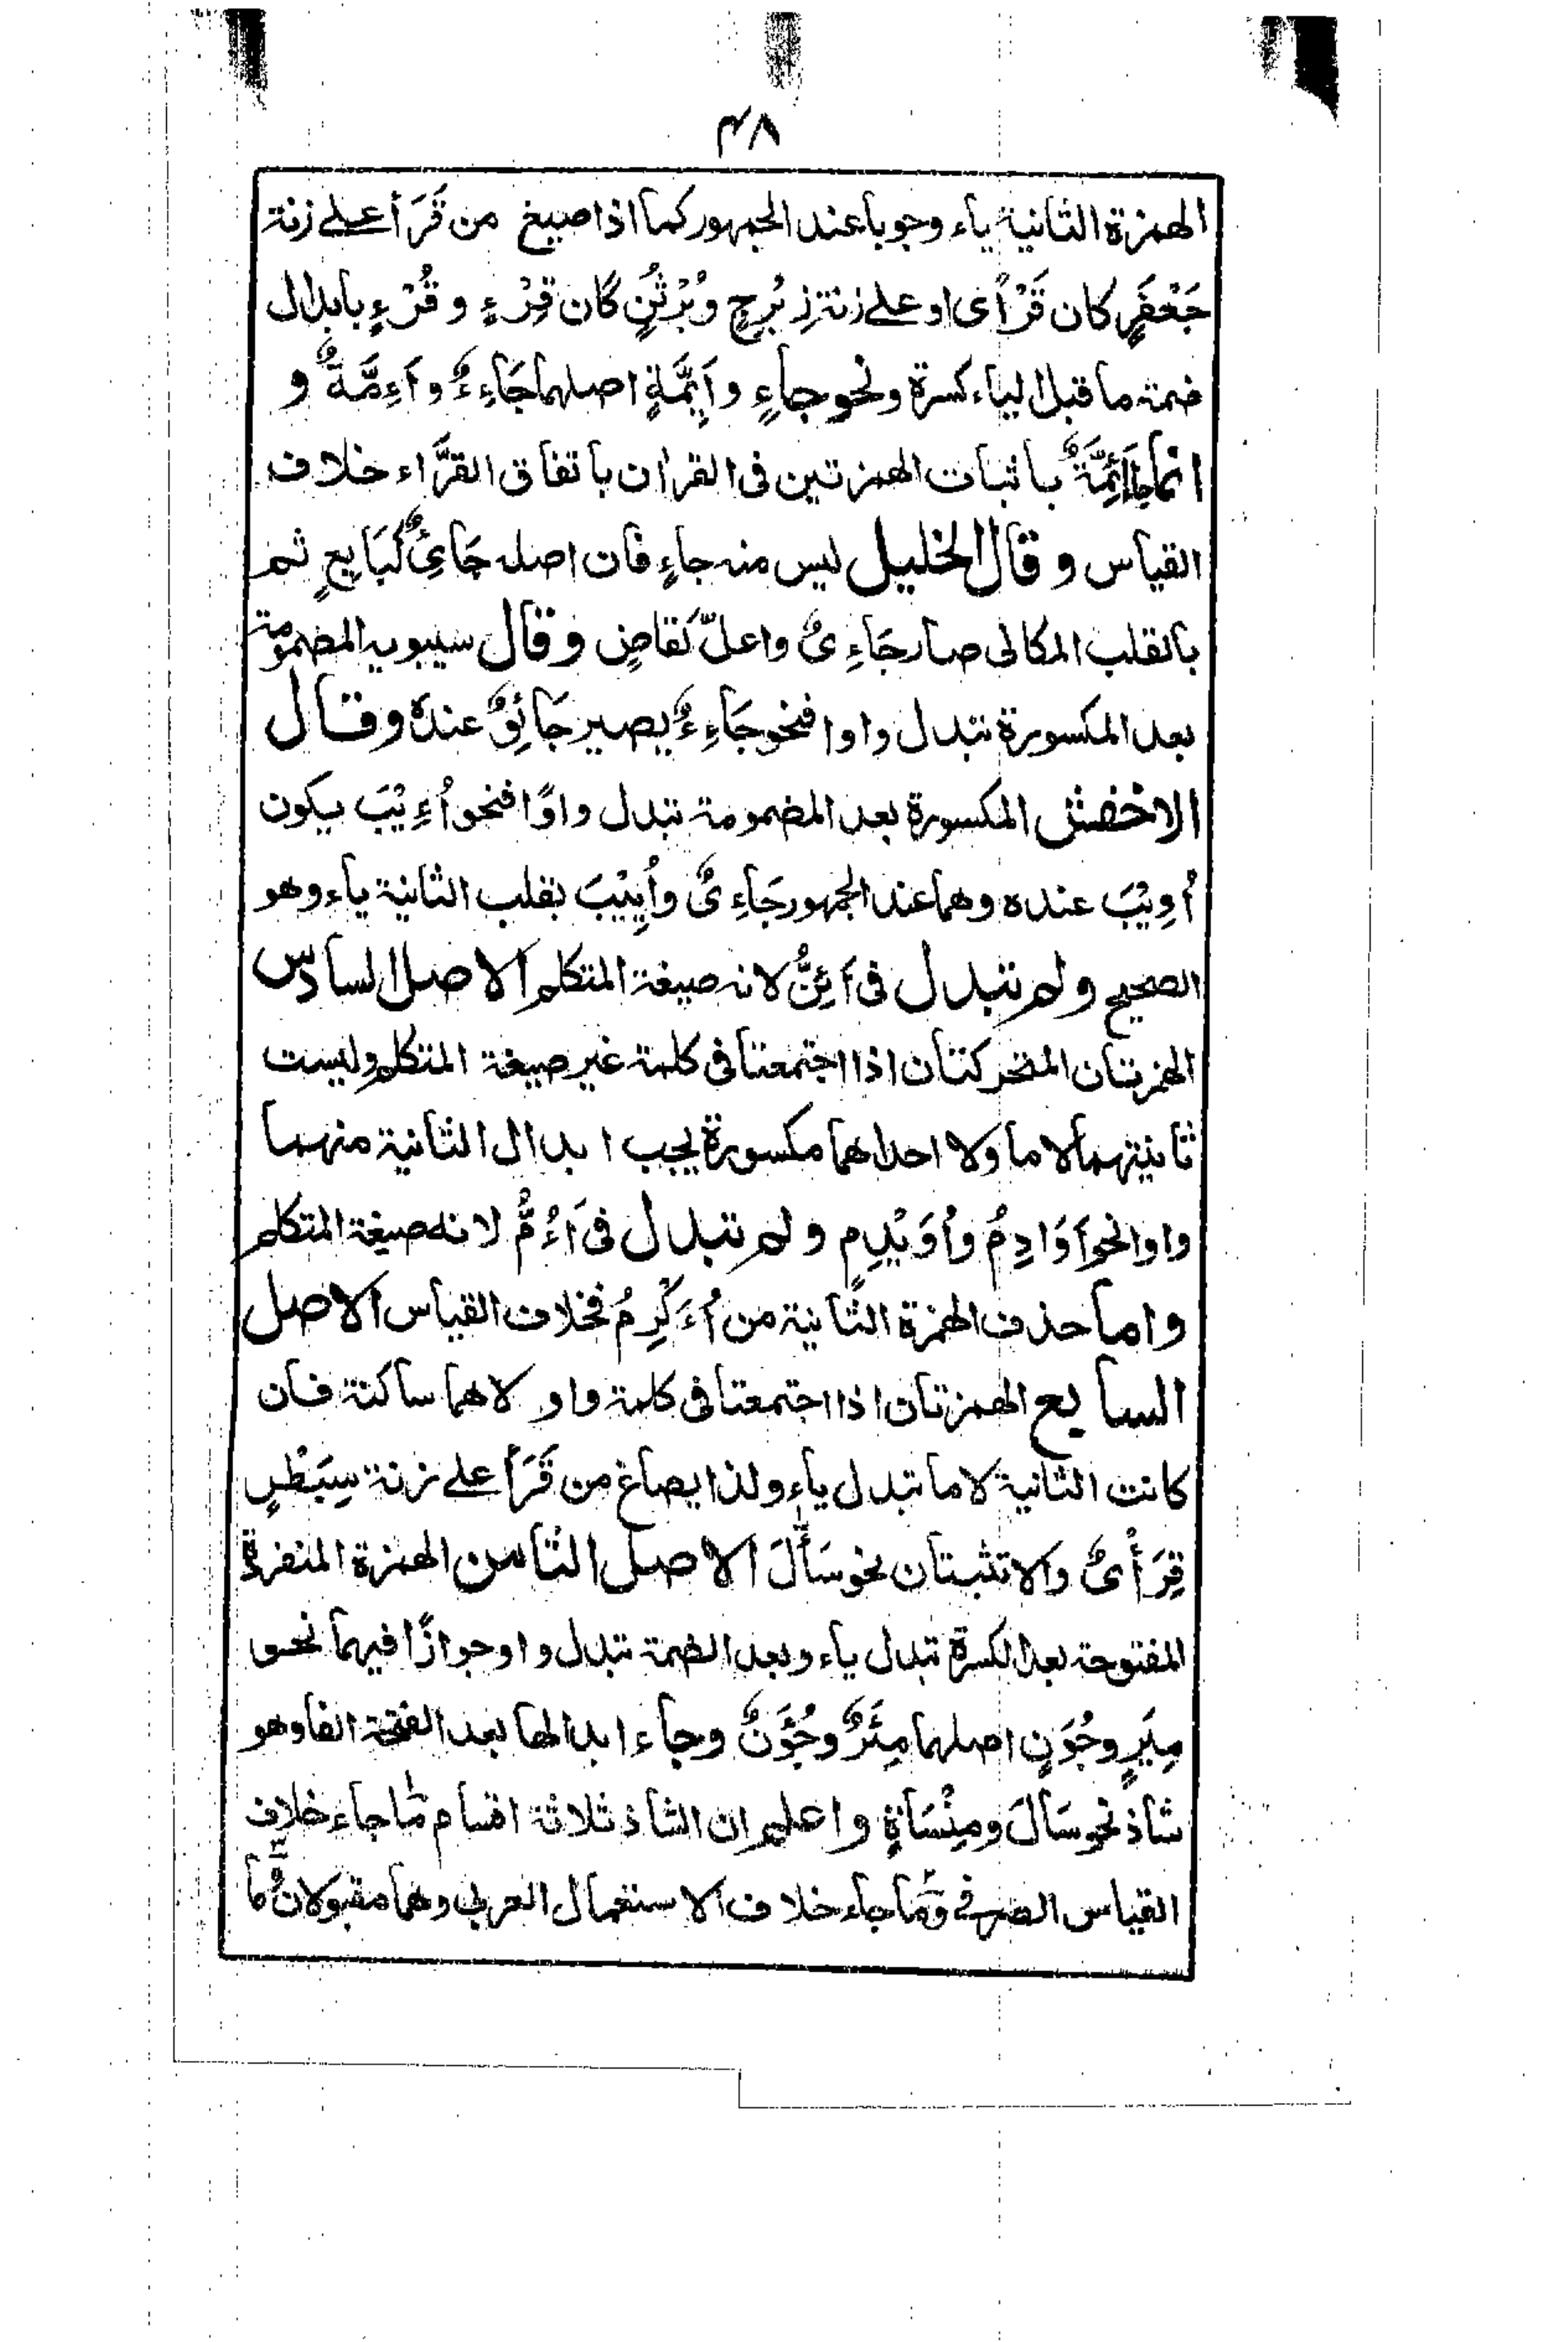 ۴۸
الهمزة الثانية ياء وجوبا عند الجمهور كما اذا صيغ من قَرَأ على زنة
جَعْفَرٍ كان قَرْأًى او على زنة زِبْرِجٍ وبُرْثُنٍ كان قِرْءٍ و قُرْءٍ بابدال
ضمة ما قبل الياء كسرة ونحو جاءٍ و اَيِمَّةٍ اصلهما جَاءِءٌ و اَءِمَّةٌ و
انما اَئِمَّةٌ باثبات الهمزتين فى القران باتفاق القُرَّاء خلاف
القياس و قال الخليل ليس منه جاءٍ فان اصله جَائِئٌ كَبَايِعٍ ثم
بالقلب المكانى صار جَاءِىٌ واعلّ كَقاضٍ و قال سيبويه المضمومة
بعد المكسورة تبدل واوا فنحو جَاءِءٌ يصير جَائِوٌ عنده و قال
الاخفش المكسورة بعد المضمومة تبدل واوًا فنحو اُءِيْبَ يكون
اُوِيْبَ عنده وهما عند الجمهور جَاءِىٌ واُيِيْبَ بقلب الثانية ياء وهو
الصحيح و لم تبدل فى اَئِنُّ لانه صيغة المتكلم الاصل السادس
الهمزتان المتحركتان اذا اجتمعتا فى كلمة غير صيغة المتكلم وليست
ثانيتهما لاما ولا احداهما مكسورة يجب ابدال الثانية منهما
واوا نحو اَوَادِمُ واُوَيْدِمٍ و لم تبدل فى اَءُمُّ لانه صيغة المتكلم
و اما حذف الهمزة الثانية من اُءَكْرِمُ فخلاف القياس الاصل
السابع الهمزتان اذا اجتمعتا فى كلمة واولاهما ساكنة فان
كانت الثانية لاما تبدل ياء ولذا يصاغ من قَرَأَ على زنة سِبَطْرٍ
قِرَأْىٌ والا تثبتان نحو سَأَّلَ الاصل الثامن الهمزة المنفردة
المفتوحة بعد الكسرة تبدل ياء وبعد الضمة تبدل واو جوازًا فيهما نحو
مِيَرٍ وجُوَنٍ اصلهما مِئَرٌ وجُؤَنٌ وجاء ابدالها بعد الفتحة الفا وهو
شاذ نحو سَالَ ومِنْسَاةٍ واعلم ان الشاذ ثلاثة اقسام ما جاء خلاف
القياس الصرفى وما جاء خلاف الاستعمال العربى وهما مقبولان وما